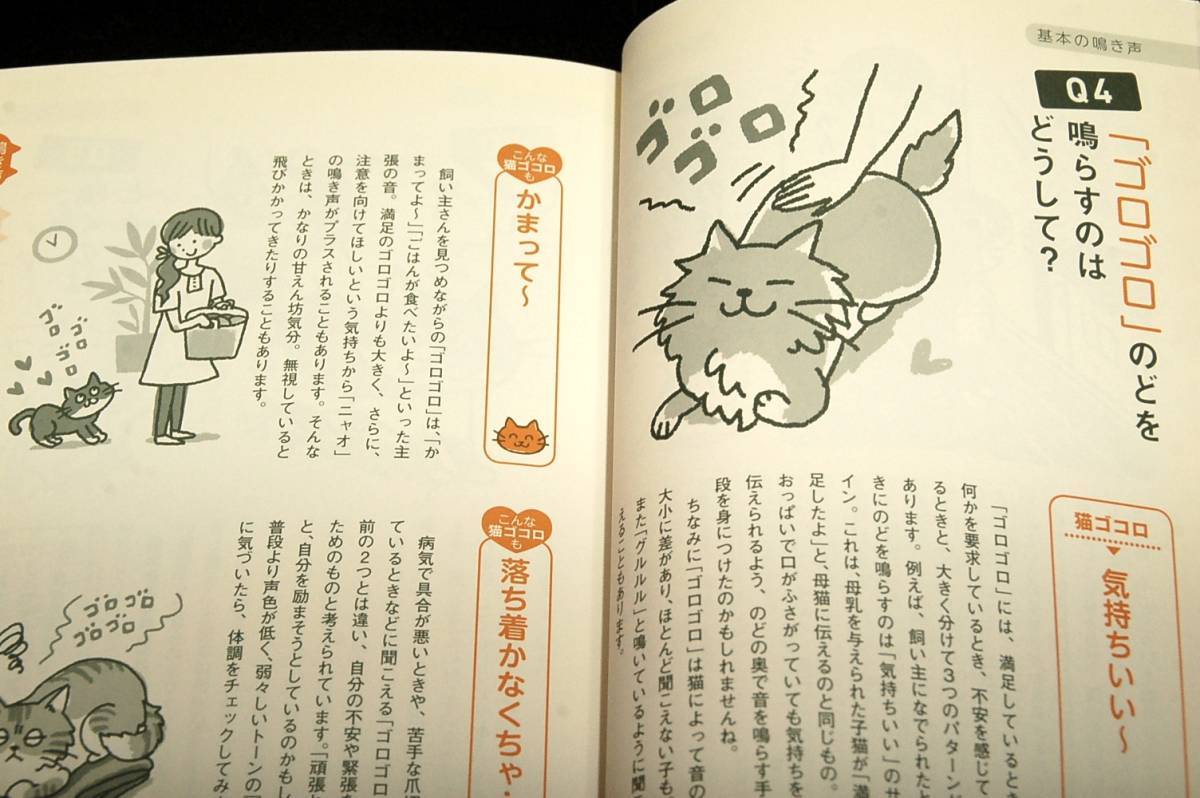 基本の鳴き声
Q4
「ゴロゴロ」のどを
鳴らすのは
どうして？
ゴロ
ゴロ
猫ゴコロ
気持ちいい～
「ゴロゴロ」には、満足しているとき
何かを要求しているとき、不安を感じて
るときと、大きく分けて3つのパターンが
あります。例えば、飼い主になでられたと
きにのどを鳴らすのは「気持ちいい」のサ
イン。これは、母乳を与えられた子猫が「満
足したよ」と、母猫に伝えるのと同じもの。
おっぱいで口がふさがっていても気持ちを
伝えられるよう、のどの奥で音を鳴らす手
段を身につけたのかもしれませんね。
ちなみに「ゴロゴロ」は猫によって音の
大小に差があり、ほとんど聞こえない子も
また「グルルル」と鳴いているように聞こ
えることもあります。
こんな
猫ゴコロ
も
かまって～
飼い主さんを見つめながらの「ゴロゴロ」は、「か
まってよ～」「ごはんが食べたいよ～」といった主
張の音。満足のゴロゴロよりも大きく、さらに、
注意を向けてほしいという気持ちから「ニャオ」
の鳴き声がプラスされることもあります。そんな
ときは、かなりの甘えん坊気分。無視していると
飛びかかってきたりすることもあります。
ゴロ
ゴロ
ゴロ
こんな
猫ゴコロ
も
落ち着かなくちゃ・
病気で具合が悪いときや、苦手な爪
ているときなどに聞こえる「ゴロゴロ
前の2つとは違い、自分の不安や緊張
ためのものと考えられています。「頑張
と、自分を励まそうとしているのかもし
普段より声色が低く、弱々しいトーンの「
に気づいたら、体調をチェックしてみ
ゴロゴロ
ゴロゴロ